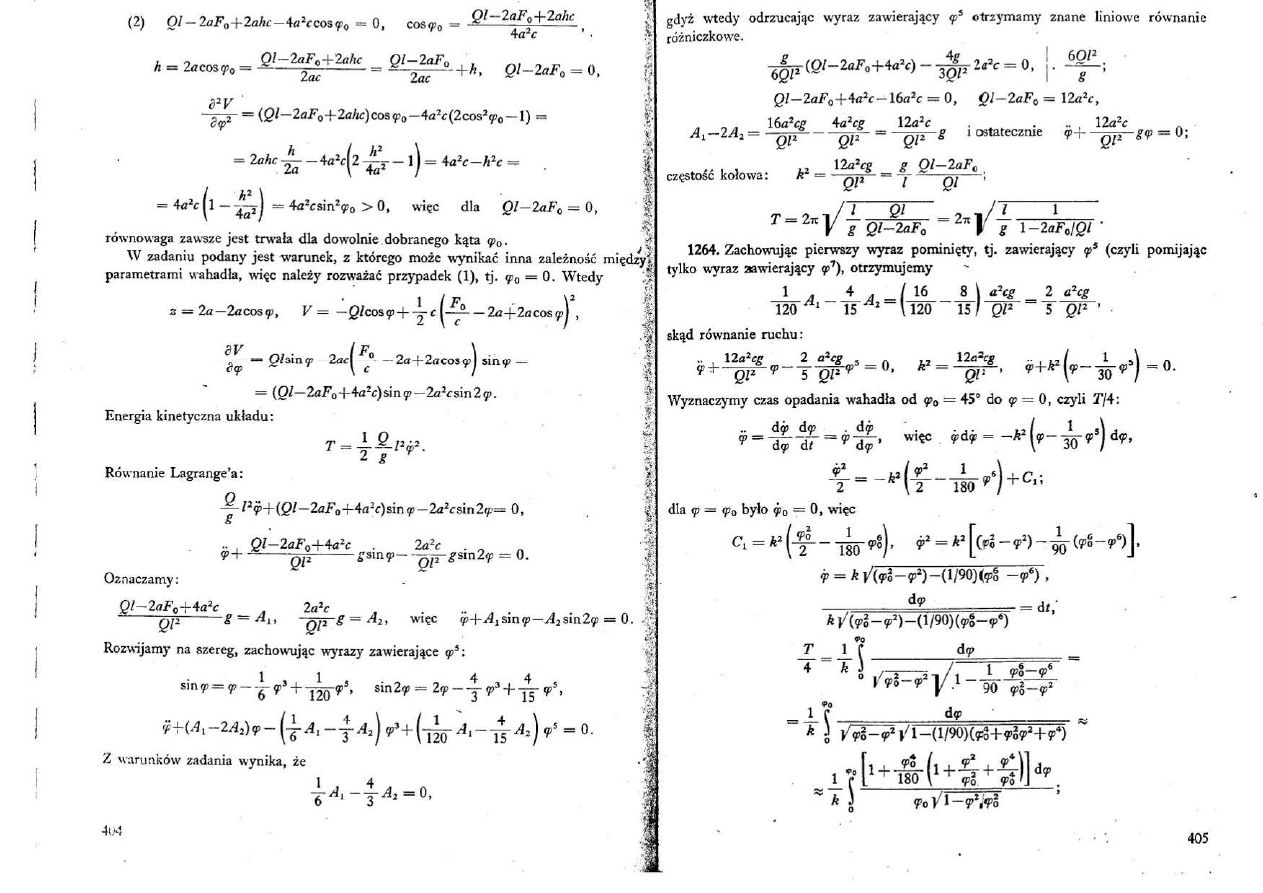 (2) Ql − 2aF₀ + 2ahc − 4a²c cos φ₀ = 0, cos φ₀ = (Ql − 2aF₀ + 2ahc)/(4a²c),
h = 2a cos φ₀ = (Ql − 2aF₀ + 2ahc)/(2ac) = (Ql − 2aF₀)/(2ac) + h, Ql − 2aF₀ = 0,
∂²V/∂φ² = (Ql − 2aF₀ + 2ahc) cos φ₀ − 4a²c(2cos²φ₀ − 1) =
= 2ahc h/(2a) − 4a²c(2 h²/(4a²) − 1) = 4a²c − h²c =
= 4a²c(1 − h²/(4a²)) = 4a²c sin²φ₀ > 0, więc dla Ql − 2aF₀ = 0,
równowaga zawsze jest trwała dla dowolnie dobranego kąta φ₀.
W zadaniu podany jest warunek, z którego może wynikać inna zależność między
parametrami wahadła, więc należy rozważać przypadek (1), tj. φ₀ = 0. Wtedy
z = 2a − 2a cos φ, V = −Ql cos φ + 1/2 c (F₀/c − 2a + 2a cos φ)²,
∂V/∂φ = Ql sin φ 2ac(F₀/c − 2a + 2a cos φ) sin φ =
= (Ql − 2aF₀ + 4a²c) sin φ − 2a²c sin 2φ.
Energia kinetyczna układu:
T = 1/2 Q/g l²φ̇².
Równanie Lagrange'a:
Q/g l²φ̈ + (Ql − 2aF₀ + 4a²c) sin φ − 2a²c sin 2φ = 0,
φ̈ + (Ql − 2aF₀ + 4a²c)/(Ql²) g sin φ − 2a²c/(Ql²) g sin 2φ = 0.
Oznaczamy:
(Ql − 2aF₀ + 4a²c)/(Ql²) g = A₁, 2a²c/(Ql²) g = A₂, więc φ̈ + A₁ sin φ − A₂ sin 2φ = 0.
Rozwijamy na szereg, zachowując wyrazy zawierające φ⁵:
sin φ = φ − 1/6 φ³ + 1/120 φ⁵, sin 2φ = 2φ − 4/3 φ³ + 4/15 φ⁵,
φ̈ + (A₁ − 2A₂)φ − (1/6 A₁ − 4/3 A₂) φ³ + (1/120 A₁ − 4/15 A₂) φ⁵ = 0.
Z warunków zadania wynika, że
1/6 A₁ − 4/3 A₂ = 0,
404
gdyż wtedy odrzucając wyraz zawierający φ⁵ otrzymamy znane liniowe równanie
różniczkowe.
g/(6Ql²) (Ql − 2aF₀ + 4a²c) − 4g/(3Ql²) 2a²c = 0, | · 6Ql²/g;
Ql − 2aF₀ + 4a²c − 16a²c = 0, Ql − 2aF₀ = 12a²c,
A₁ − 2A₂ = 16a²cg/(Ql²) − 4a²cg/(Ql²) = 12a²c/(Ql²) g i ostatecznie φ̈ + 12a²c/(Ql²) gφ = 0;
częstość kołowa: k² = 12a²cg/(Ql²) = g/l (Ql − 2aF₀)/(Ql);
T = 2π √(l/g · Ql/(Ql − 2aF₀)) = 2π √(l/g · 1/(1 − 2aF₀/Ql)).
1264. Zachowując pierwszy wyraz pominięty, tj. zawierający φ⁵ (czyli pomijając
tylko wyraz zawierający φ⁷), otrzymujemy
1/120 A₁ − 4/15 A₂ = (16/120 − 8/15) a²cg/(Ql²) = 2/5 a²cg/(Ql²),
skąd równanie ruchu:
φ̈ + 12a²cg/(Ql²) φ − 2/5 a²cg/(Ql²) φ⁵ = 0, k² = 12a²cg/(Ql²), φ̈ + k²(φ − 1/30 φ⁵) = 0.
Wyznaczymy czas opadania wahadła od φ₀ = 45° do φ = 0, czyli T/4:
φ̈ = dφ̇/dφ dφ/dt = φ̇ dφ̇/dφ, więc φ̇dφ̇ = −k²(φ − 1/30 φ⁵) dφ,
φ̇²/2 = −k²(φ²/2 − 1/180 φ⁶) + C₁;
dla φ = φ₀ było φ̇₀ = 0, więc
C₁ = k²(φ₀²/2 − 1/180 φ₀⁶), φ̇² = k²[(φ₀² − φ²) − 1/90 (φ₀⁶ − φ⁶)],
φ̇ = k √((φ₀² − φ²) − (1/90)(φ₀⁶ − φ⁶)),
dφ/(k √((φ₀² − φ²) − (1/90)(φ₀⁶ − φ⁶))) = dt,
T/4 = 1/k ∫₀^φ₀ dφ/(√(φ₀² − φ²) √(1 − 1/90 (φ₀⁶ − φ⁶)/(φ₀² − φ²))) =
= 1/k ∫₀^φ₀ dφ/(√(φ₀² − φ²) √(1 − (1/90)(φ₀⁴ + φ₀²φ² + φ⁴))) ≈
≈ 1/k ∫₀^φ₀ [1 + φ₀⁴/180 (1 + φ²/φ₀² + φ⁴/φ₀⁴)] dφ/(φ₀ √(1 − φ²/φ₀²));
405